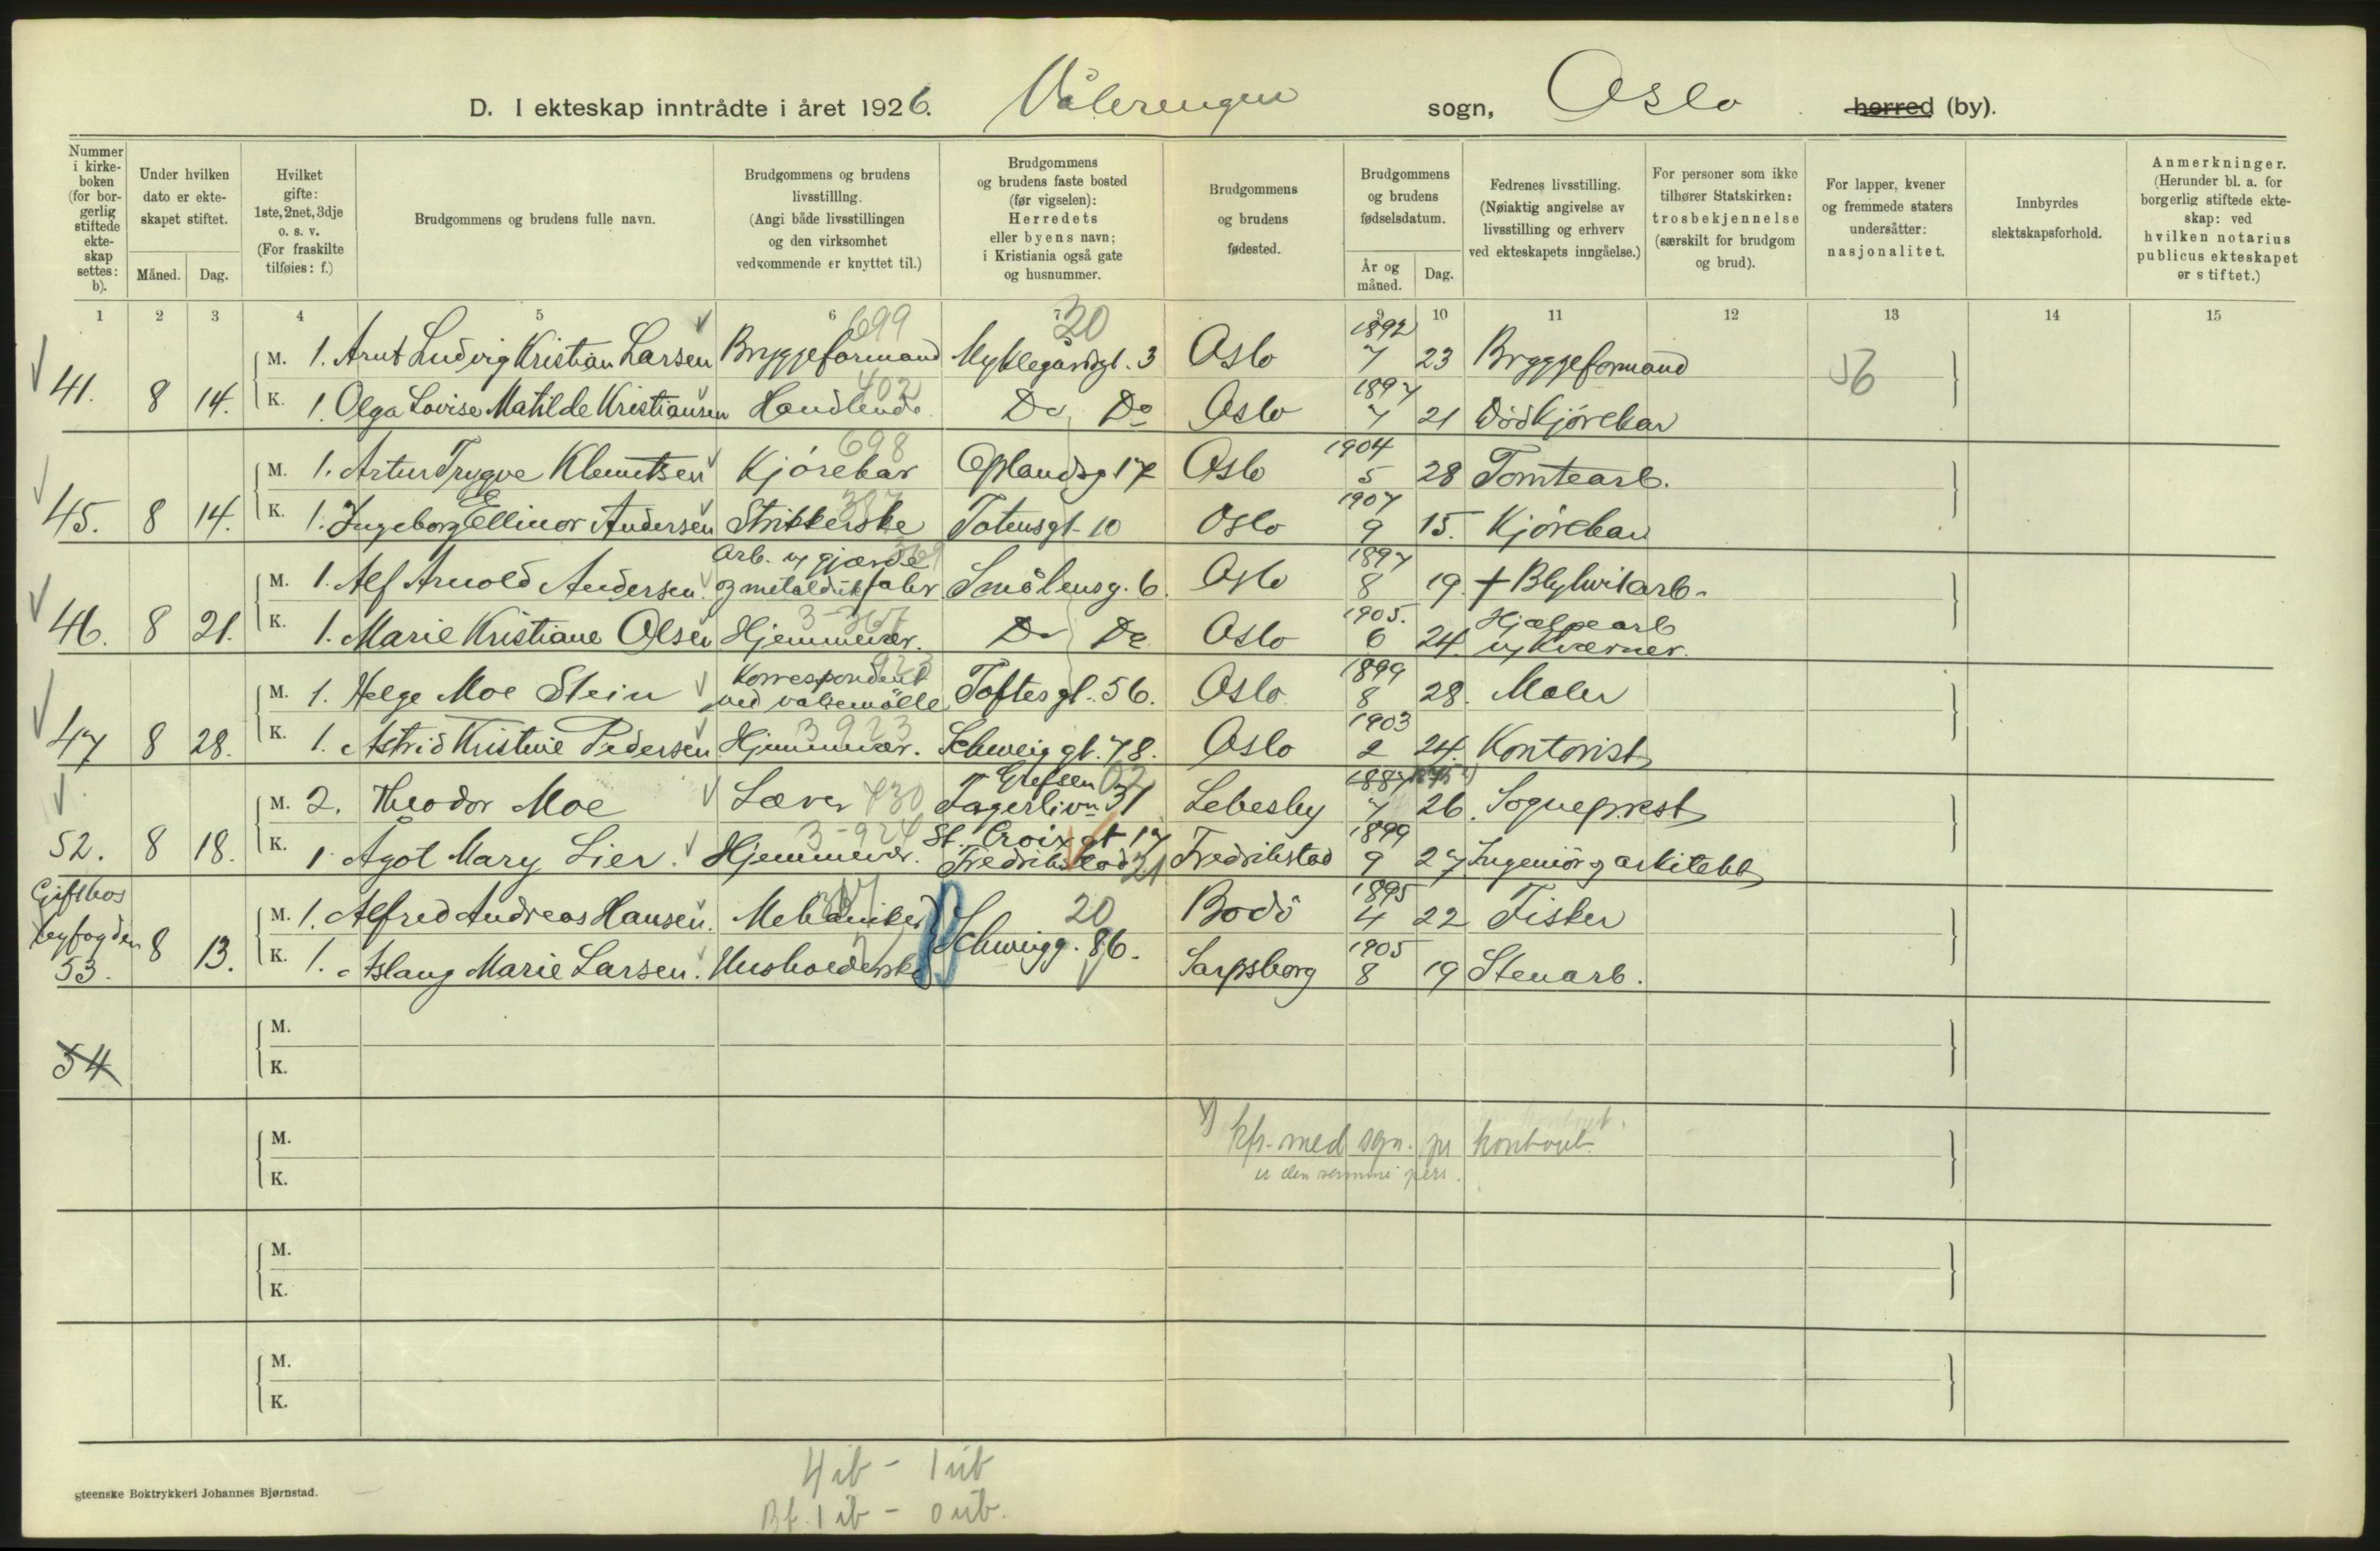 D. I ekteskap inntrådte i året 1926. Vålerengen sogn, Oslo herred (by).
Nummer i kirkeboken (for borgerlig stiftede ekteskap settes: b).
Under hvilken dato er ekteskapet stiftet.
Måned. Dag.
Hvilket gifte: 1ste, 2net, 3dje o. s. v. (For fraskilte tilføies: f.)
Brudgommens og brudens fulle navn.
Brudgommens og brudens livsstilllng. (Angi både livsstillingen og den virksomhet vedkommende er knyttet til.)
Brudgommens og brudens faste bosted (før vigselen): Herredets eller byens navn; i Kristiania også gate og husnummer.
Brudgommens og brudens fødested.
Brudgommens og brudens fødselsdatum.
År og måned. Dag.
Fedrenes livsstilling. (Nøiaktig angivelse av livsstilling og erhverv ved ekteskapets inngåelse.)
For personer som ikke tilhører Statskirken: trosbekjennelse (særskilt for brudgom og brud).
For lapper, kvener og fremmede staters undersåtter: nasjonalitet.
Innbyrdes slektskapsforhold.
Anmerkninger. (Herunder bl. a. for borgerlig stiftede ekteskap: ved hvilken notarius publicus ekteskapet er stiftet.)
1 2 3 4 5 6 7 9 10 11 12 13 14 15
699 20
41. 8 14. M. 1. Arnt Ludvig Kristian Larsen Bryggeformand Myklegårdsgt. 3 Oslo 1892 7 23 Bryggeformand 56
K. 1. Olga Lovise Matilde Kristiansen Handlende 402 Do Do Oslo 1897 7 21 Död Kjörekar
45. 8 14. M. 1. Artur Trygve Klemetsen Kjörekar 698 Oplandsg 17 Oslo 1904 5 28 Tomtearb.
K. 1. Ingeborg Ellinor Andersen Strikkerske Totensgt. 10 Oslo 1907 9 15. Kjörekar
46. 8 21. M. 1. Alf Arnold Andersen Arb. v gjærde og metaldukfabr. Smålensg. 6. Oslo 1897 8 19. + Blyhvitarb.
K. 1. Marie Kristiane Olsen Hjemmevær. 3-367 Do Do Oslo 1905. 6 24. Hjælpearb v/Kværner.
47 8 28. M. 1. Helge Moe Stein Korrespondent ved valsemölle Toftesgt. 56. Oslo 1899 8 28. Maler
K. 1. Astrid Kristine Pedersen Hjemmevær. 3923 Schweiggt. 78. Oslo 1903 2 24. Kontorist
52. 8 18. M. 2. Theodor Moe Lærer 730 Grefsen Fagerlivn 31 Lebesby 1887 7 26. Sogneprest
K. 1 Ågot Mary Lier. Hjemmevær. 3-924 St. Croixgt 17 Fredrikstad 21 Fredrikstad 1899 9 27 Ingeniör og arkitekt
Gift hos byfogden
53. 8 13. M. 1. Alfred Andreas Hansen. Mekaniker Schweigg. 86. 20 Bodö 1895 4 22 Fisker
K. 1. Aslaug Marie Larsen. Husholderske Sarpsborg 1905 8 19 Stenarb.
54 M.
K.
M.
x) kfr. med sgn. pr kontoret.
K.
er den samme pers.
M.
K.
M.
K.
4 ib - 1 ub
Bf. 1 ib - 0 ub.
gteenske Boktrykkeri Johannes Bjørnstad.